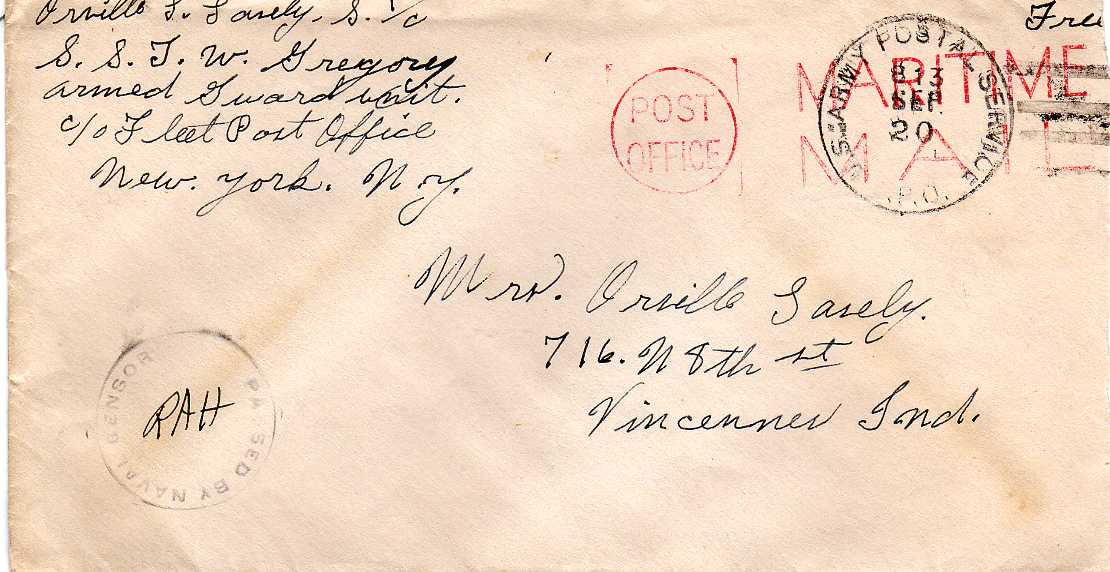 Orville L. Lasely, S. 1/c
S. S. T. W. Gregory
armed Guard unit.
c/o Fleet Post Office
New. York. N.Y.
Free
POST
OFFICE
MARITIME
MAIL
U.S. ARMY POSTAL SERVICE
A.P.O.
SEP
20
Mrs. Orville Lasely.
716. N 8th st
Vincennes Ind.
PASSED BY NAVAL CENSOR
RAH